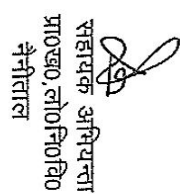 सहायक अभियन्ता
प्रा०ख०,लो०नि०वि०
नैनीताल